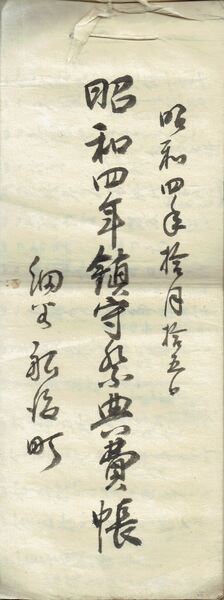 昭和四年拾月拾五日
昭和四年鎮守祭典費帳
細谷
町